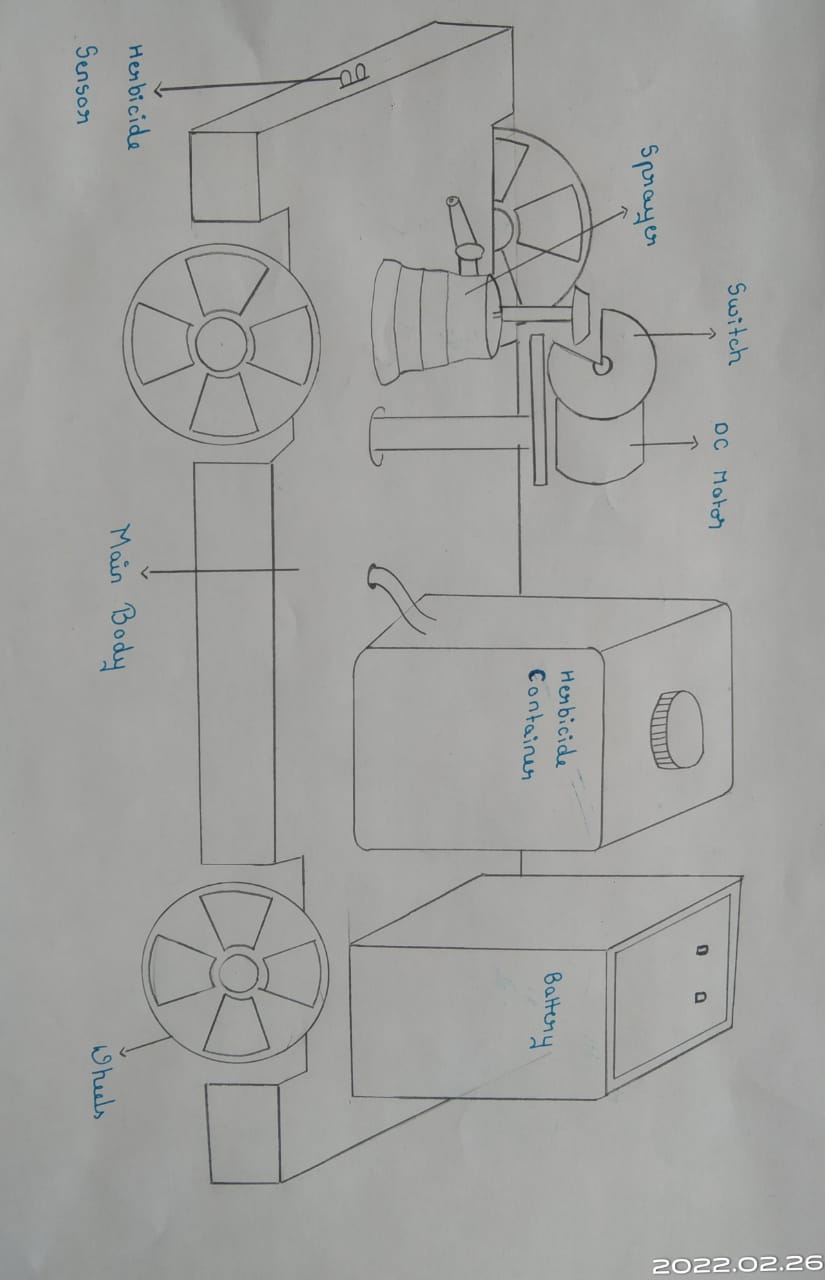 Switch
DC Motor
Sprayer
Herbicide
Container
Battery
Herbicide
Sensor
Main Body
Wheels
2022.02.26